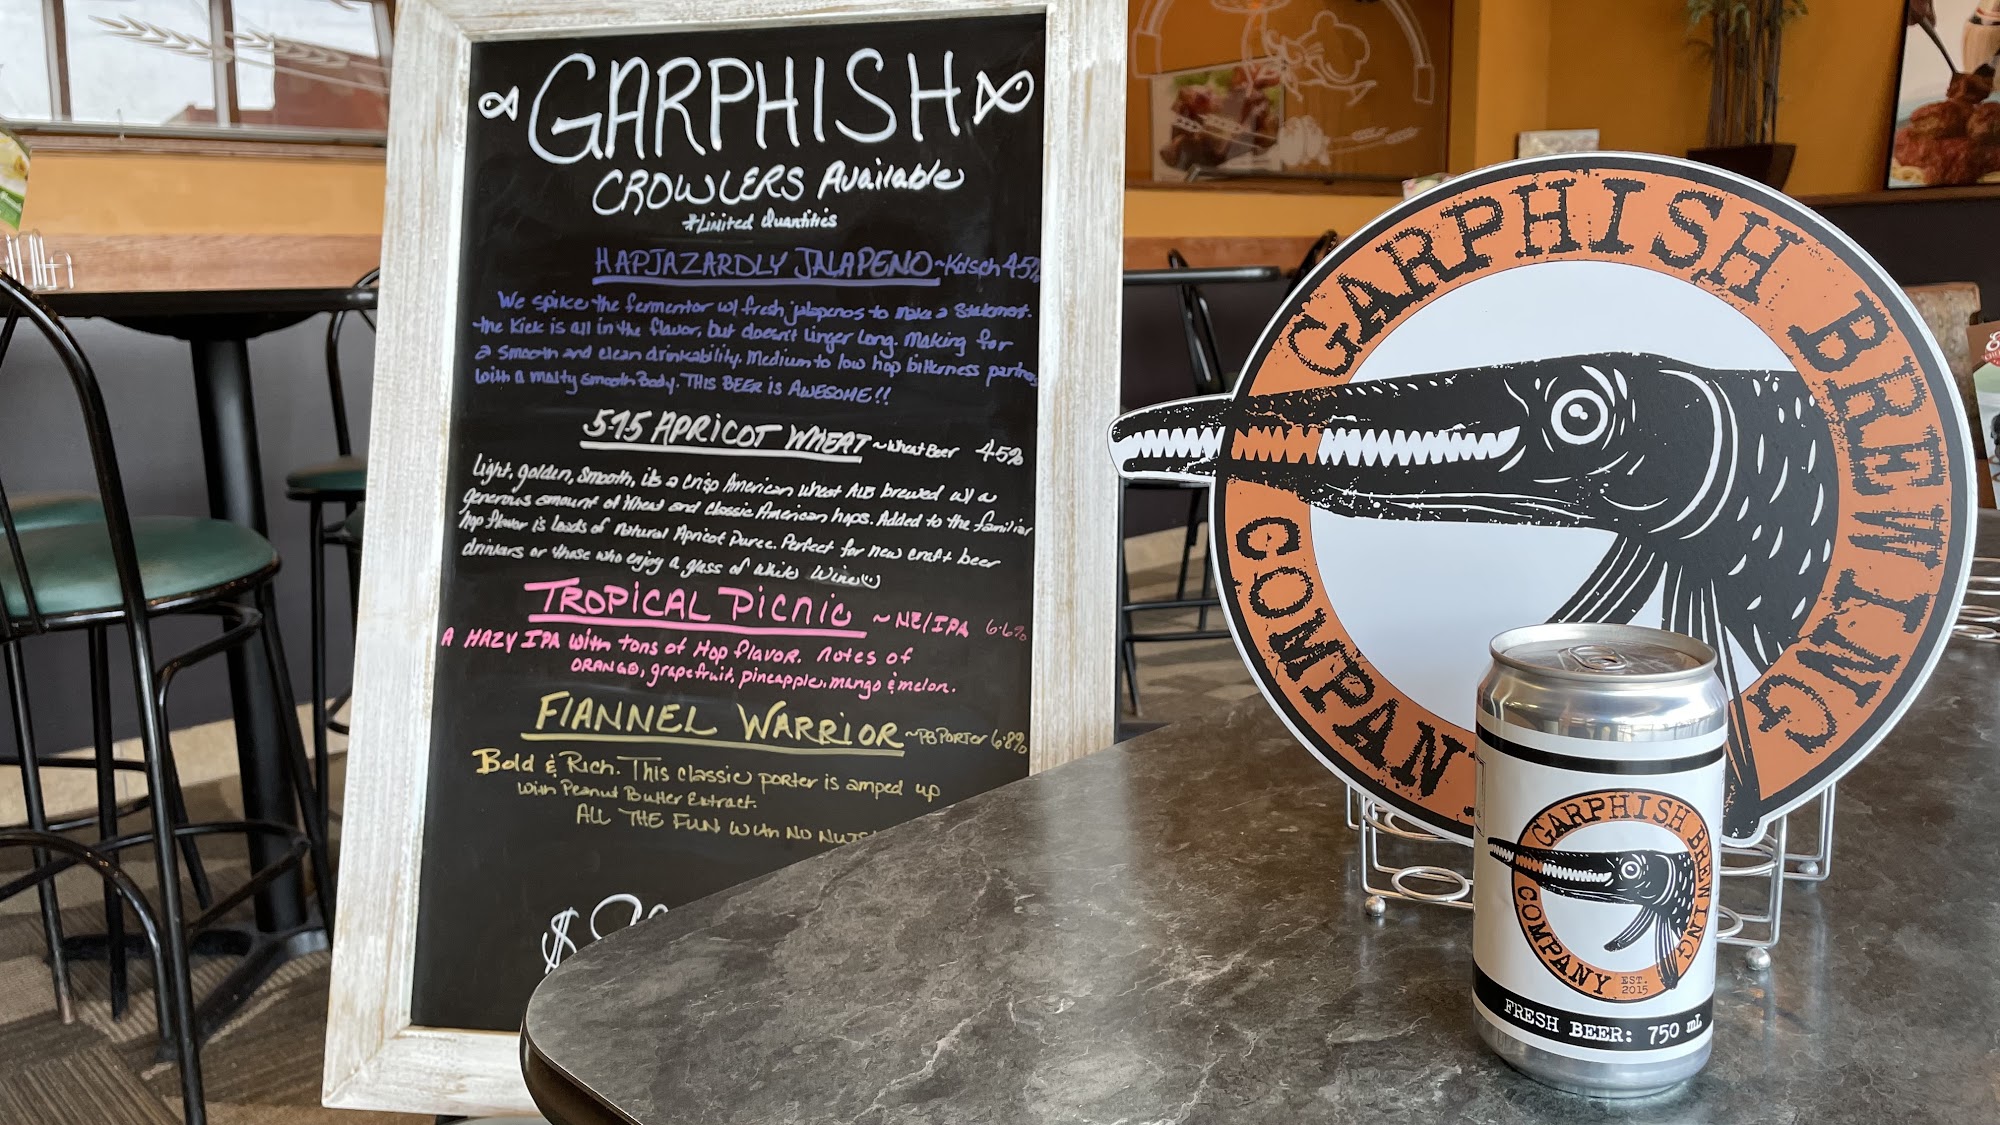 GARPHISH
CROWLERS Available
*Limited Quantities
HAPJAZARDLY JALAPENO ~Kolsch 4.5%
We spike the fermentor w/ fresh jalapenos to make a statement.
the Kick is all in the flavor, but doesn't linger long. Making for
a smooth and clean drinkability. Medium to low hop bitterness partners
with a malty smooth Body. THIS BEER is AWESOME!!
515 APRICOT WHEAT ~Wheat Beer 4.5%
Light, golden, smooth, its a crisp American wheat Ale brewed w/ a
generous amount of Wheat and classic American hops. Added to the familiar
hop flavor is loads of Natural Apricot Puree. Perfect for new craft beer
drinkers or those who enjoy a glass of White Wine
TROPICAL PICNIC ~ NE/IPA 6.6%
A HAZY IPA with tons of Hop flavor. Notes of
ORANGE, grapefruit, pineapple, mango & melon.
FLANNEL WARRIOR ~PB PORTER 6.8%
Bold & Rich. This classic porter is amped up
with Peanut Butter Extract.
ALL THE FUN with NO NUTS
$
GARPHISH BREWING
COMPANY
GARPHISH BREWING
COMPANY
EST.
2015
FRESH BEER: 750 mL